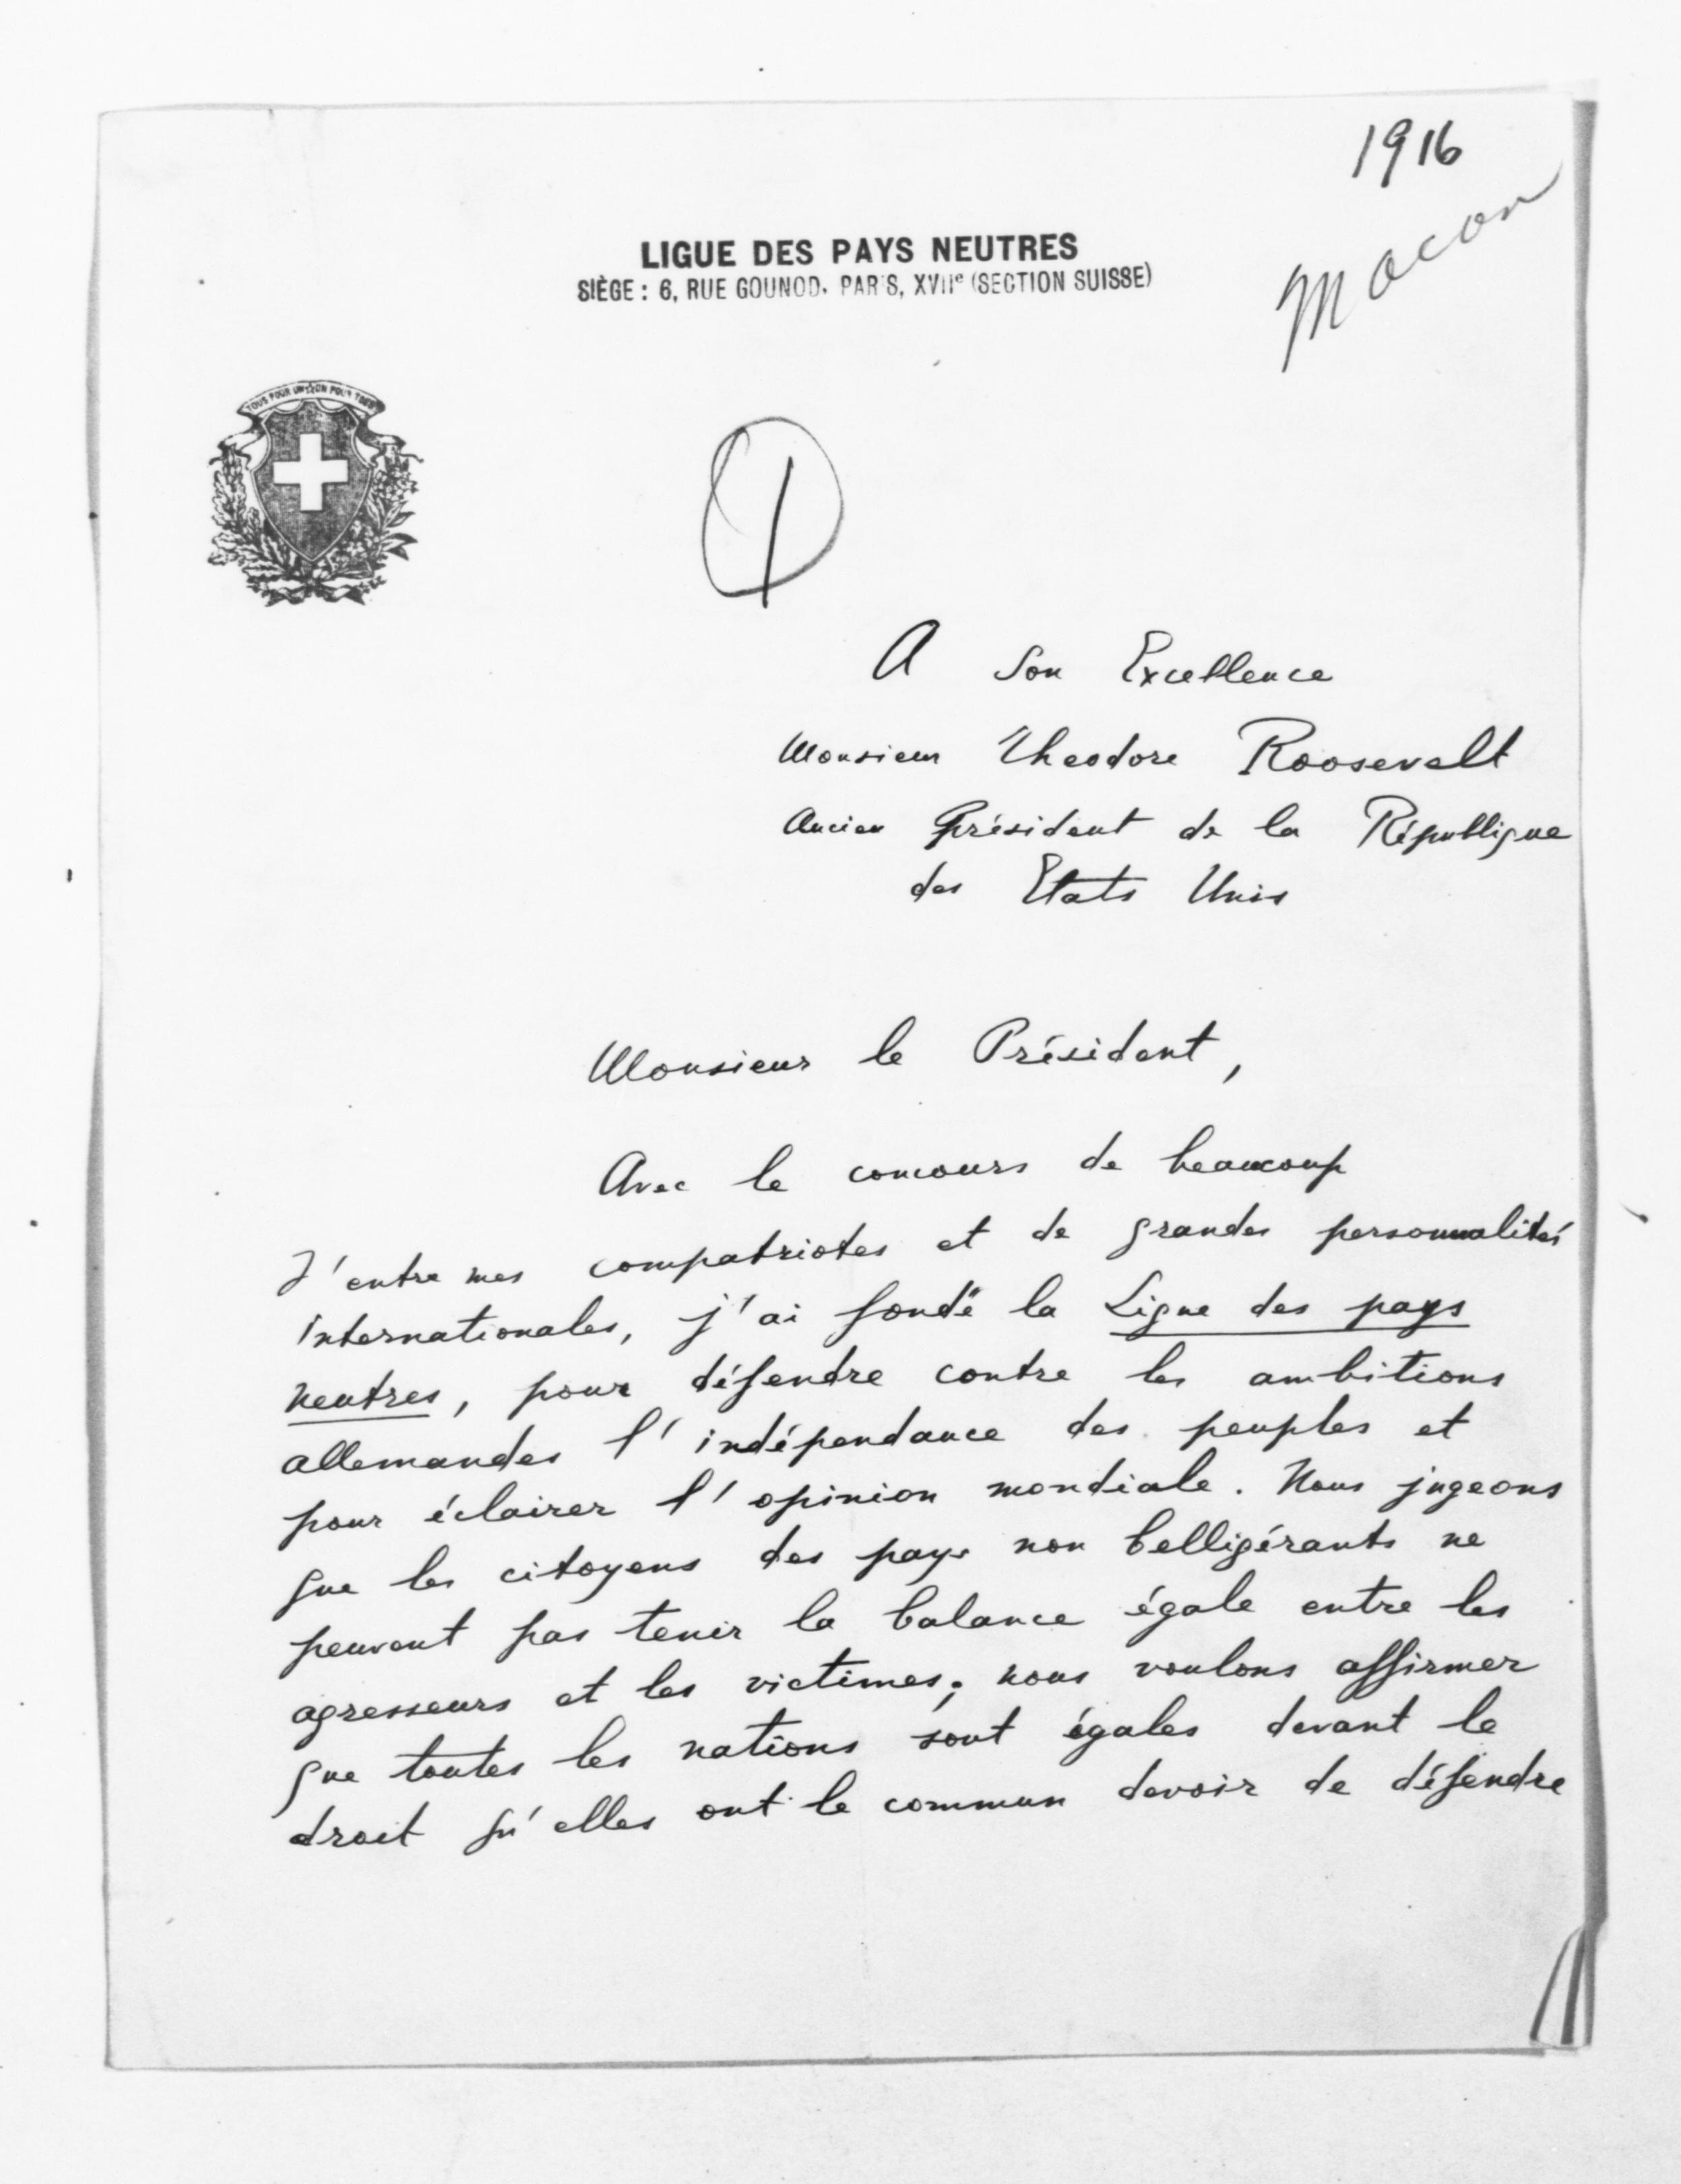 1916
Macon
LIGUE DES PAYS NEUTRES
SIÈGE : 6, RUE GOUNOD, PARIS, XVIIe (SECTION SUISSE)
TOUS POUR UN UN POUR TOUS
1
A Son Excellence
Monsieur Theodore Roosevelt
Ancien Président de la République
des Etats Unis
Monsieur le Président,
Avec le concours de beaucoup
d'entre mes compatriotes et de grandes personnalités
internationales, j'ai fondé la Ligue des pays
neutres, pour défendre contre les ambitions
allemandes l'indépendance des peuples et
pour éclairer l'opinion mondiale. Nous jugeons
que les citoyens des pays non belligérants ne
peuvent pas tenir la balance égale entre les
agresseurs et les victimes; nous voulons affirmer
que toutes les nations sont égales devant le
droit qu'elles ont le commun devoir de défendre